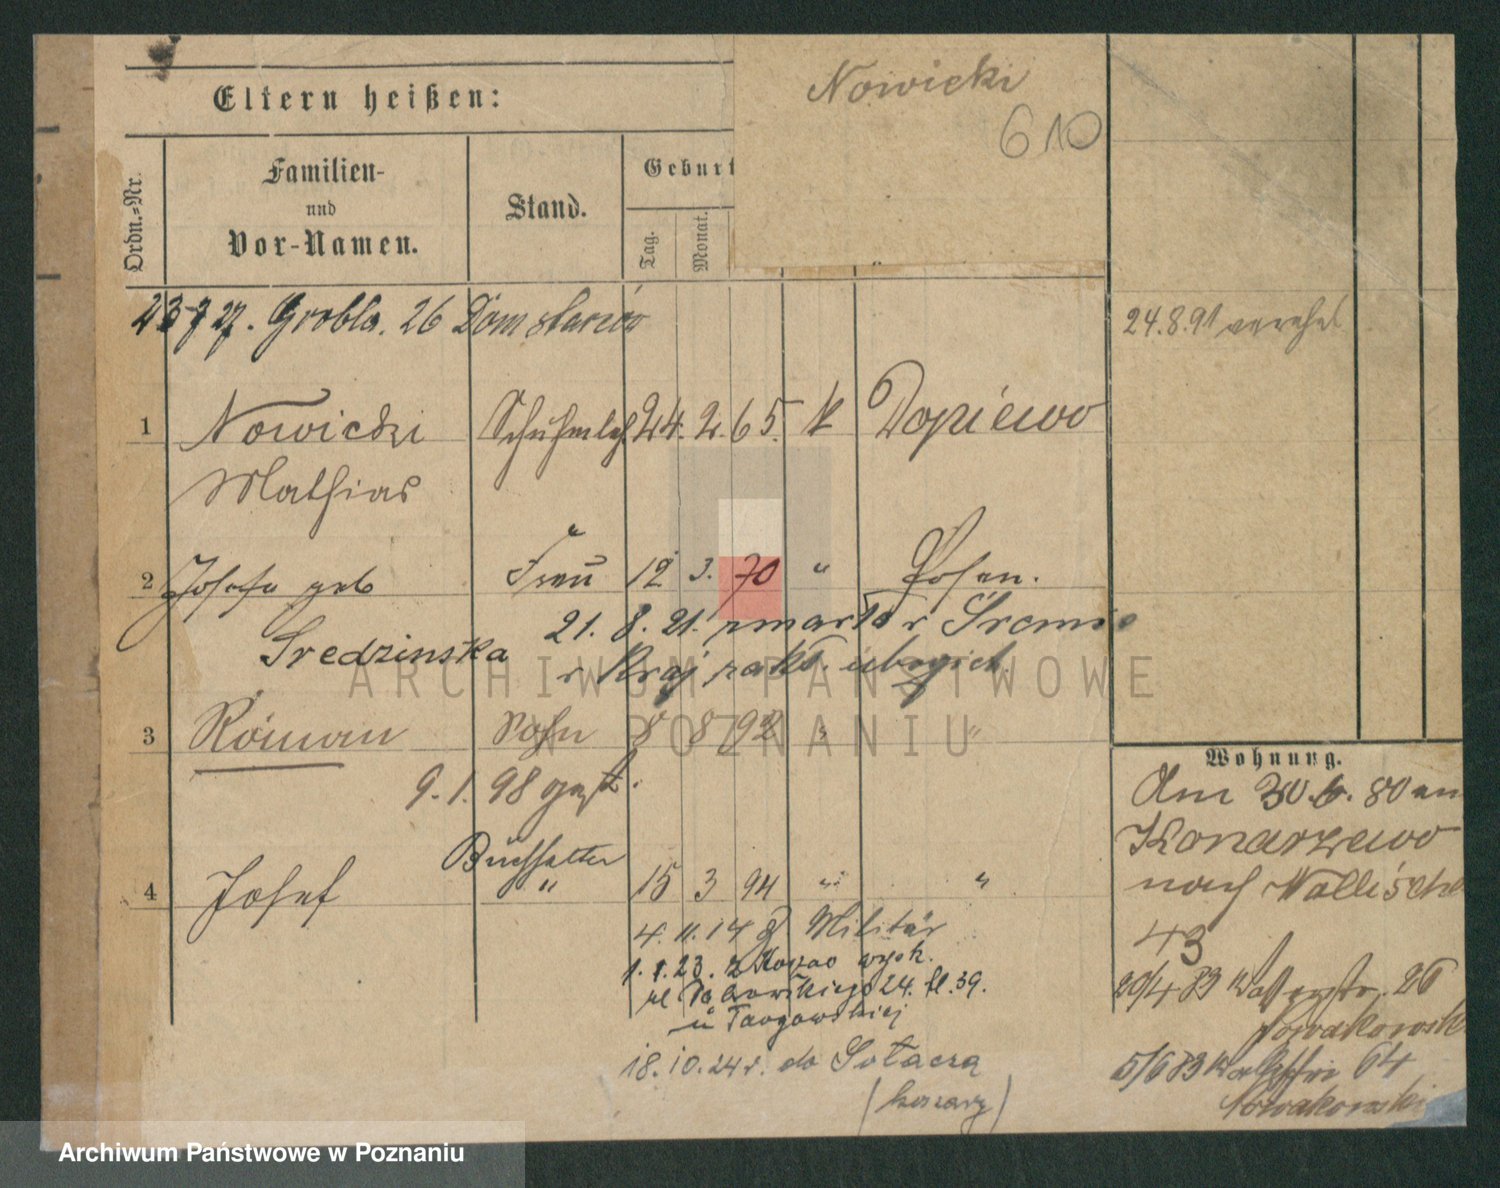 Nowicki
610
Eltern heißen:
Ordn.-Nr.
Familien-
und
Vor-Namen.
Stand.
Geburt
Tag.
Monat.
27. Grobla. 26 Dom starców
24.8.91 verehel.
1 Nowicki Schuhmch 24. 2. 65. k Dopiewo
Mathias
2 Josefa geb Frau 12 3. 70 " Posen.
Sredzinska
21. 8. 21. zmarła w Śremie
w Kraj zakł. ubogich
3 Roman Sohn 8 8 92 " "
9. 1. 98 gest.
Buchhalter
4 Josef " 15 3 94 " "
4. 11. 14 Militär
1. 1. 23. z
ul 24. fl. 39.
u Targowskiej
18. 10. 24 r. do Sołacza
(koszary)
Wohnung.
Am 30. 6. 80 von
Konarzewo
nach Wallische
43
20/4 83 26
Nowakowski
5/6 83 Wallischei 64
Nowakowski
ARCHIWUM PAŃSTWOWE
W POZNANIU
Archiwum Państwowe w Poznaniu